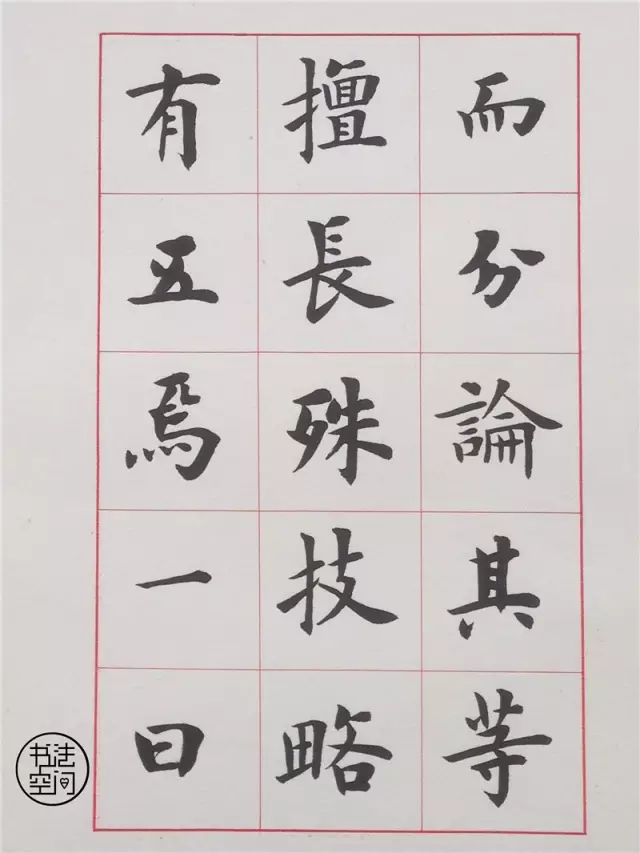 而分論其等
擅長殊技略
有五焉一曰
书法
空间